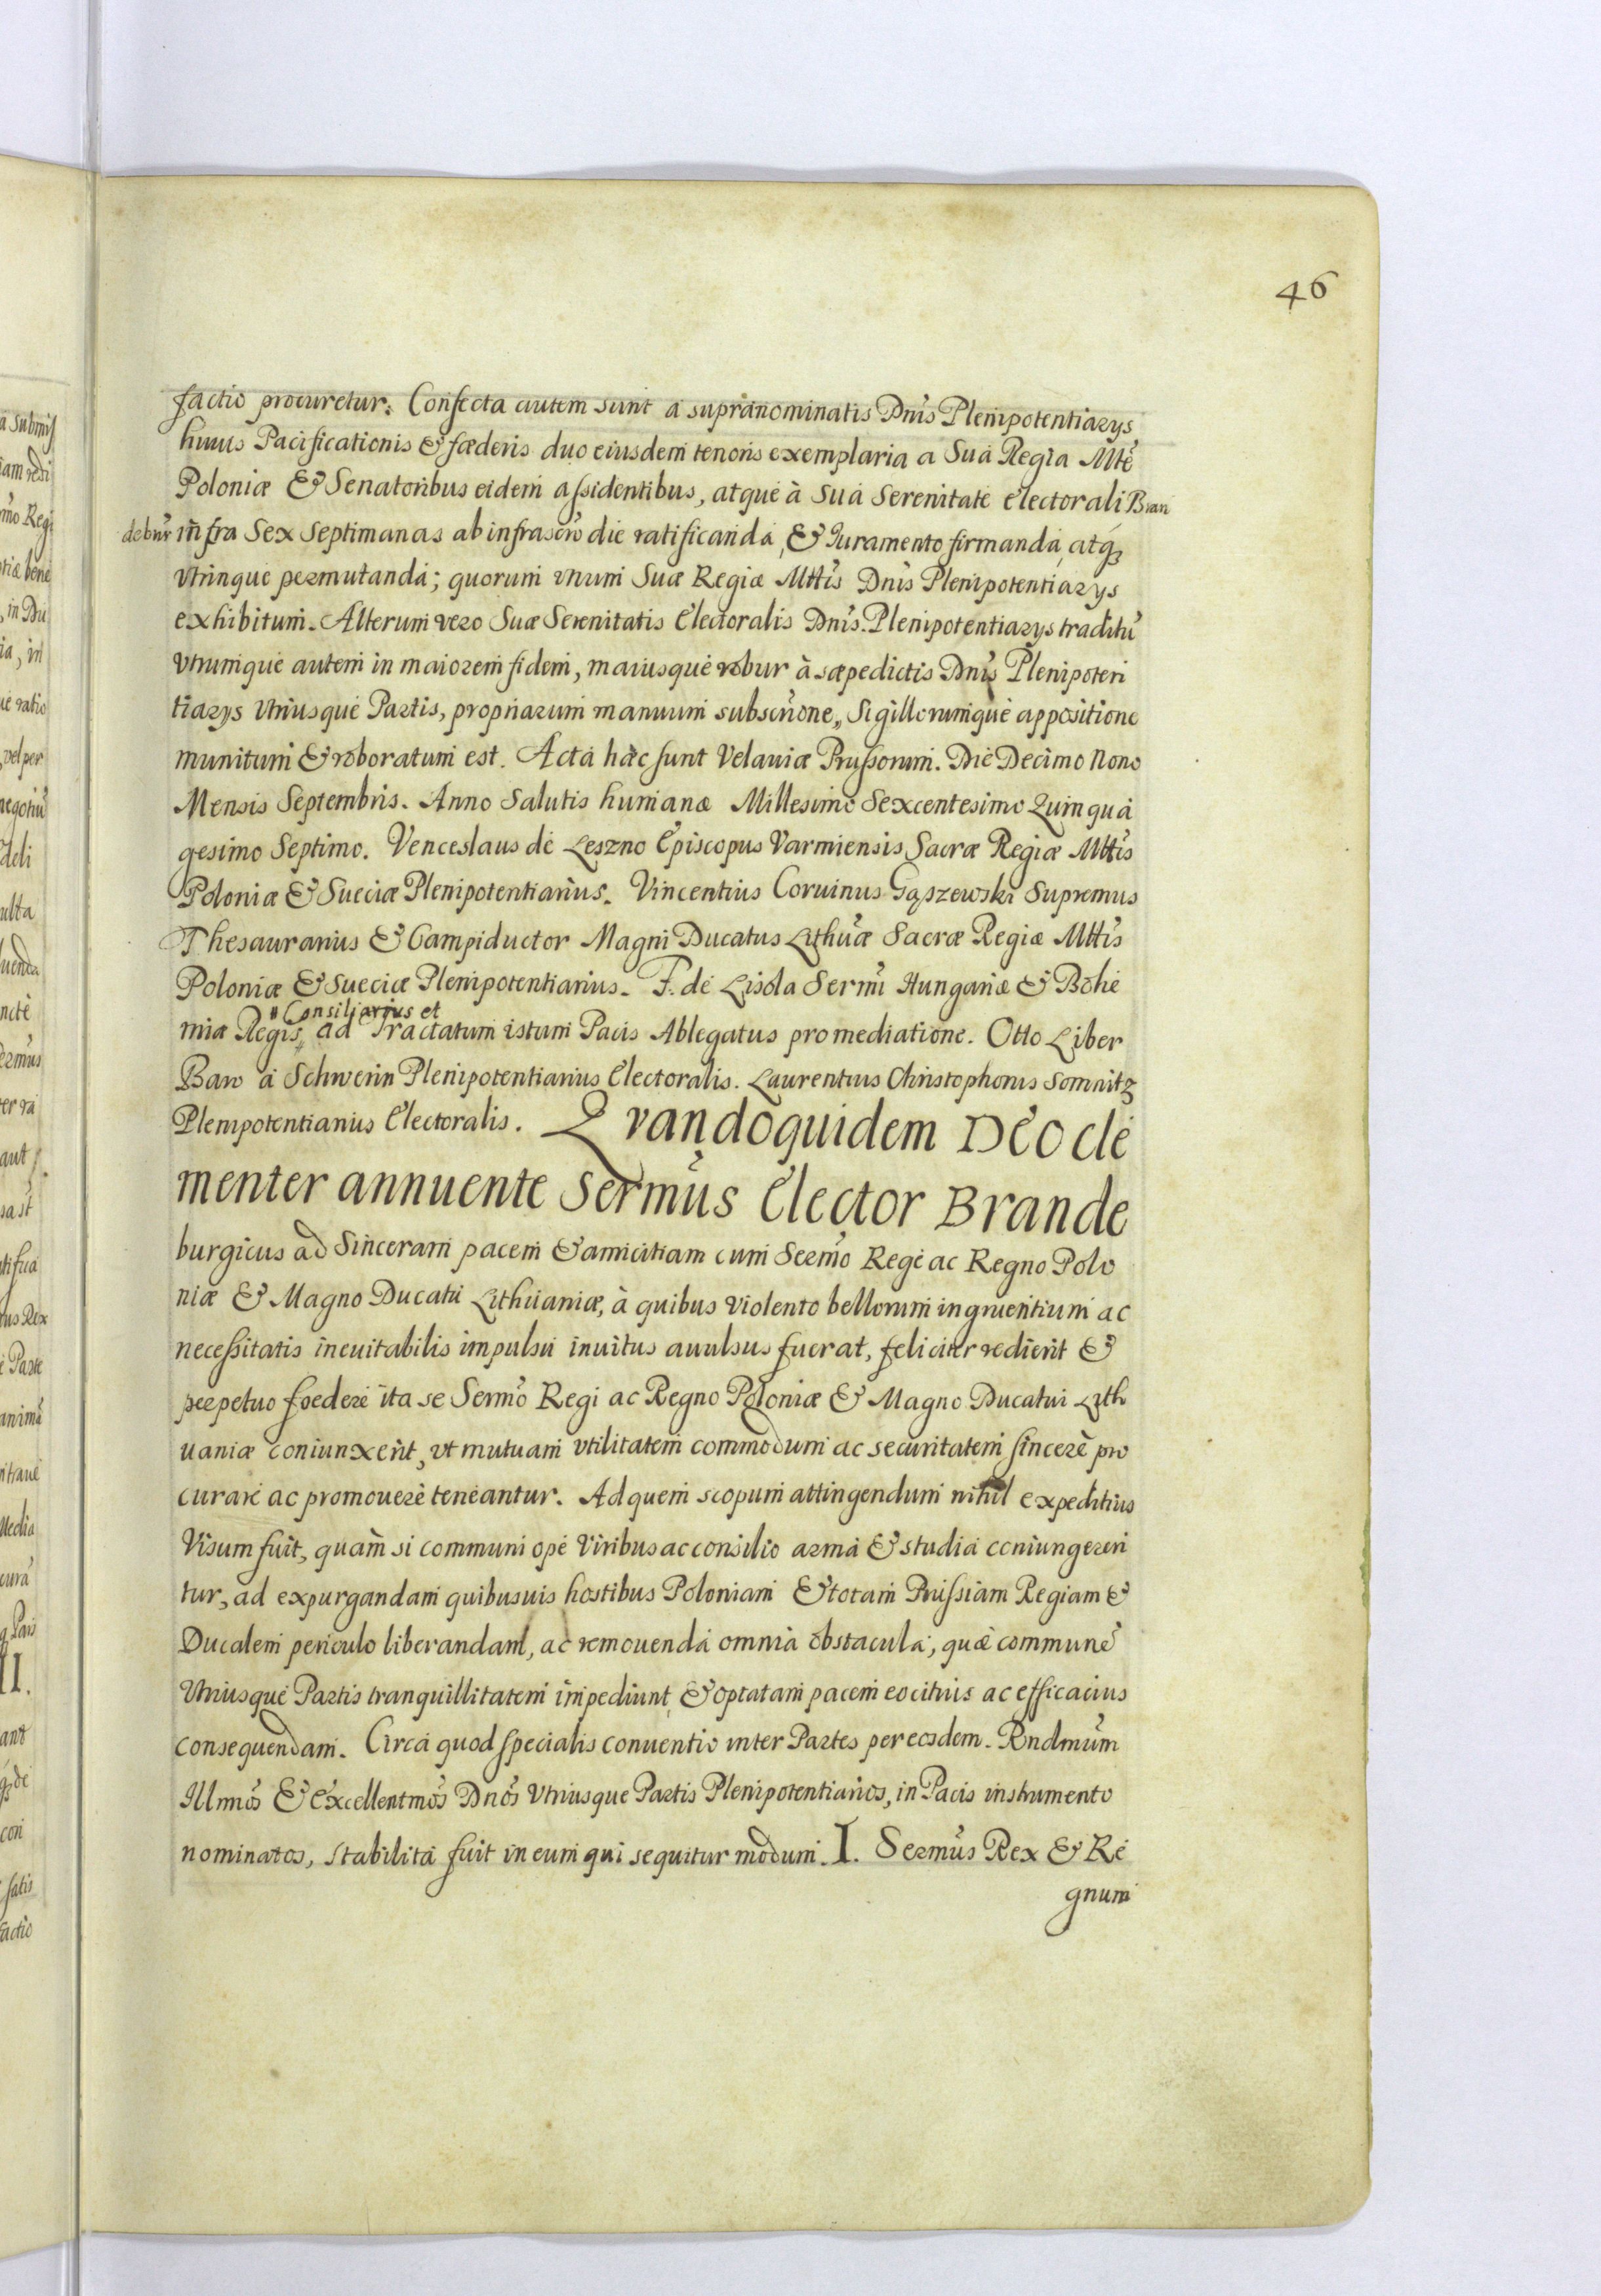 46
factio procuretur. Confecta autem sunt à supranominatis Dnis Plenipotentiarys
huius Pacificationis & fœderis duo eiusdem tenoris exemplaria a Sua Regia Mtē
Poloniæ & Senatoribus eidem assidentibus, atque à Sua Serenitate Electorali Bran
debur infra Sex Septimanas ab infrascrō die ratificanda, & Iuramento firmanda, atq́
Vtrinque permutanda; quorum vnum Suæ Regiæ Mttis Dnis Plenipotentiarys
exhibitum. Alterum vero Suæ Serenitatis Electoralis Dnis. Plenipotentiarys traditū
Vtrumque autem in maiorem fidem, maiusque robur à sæpedictis Dnis Plenipoten
tiarys Vtriusque Partis, propriarum manuum subscrione, Sigillorumque appositione
munitum & roboratum est. Acta hæc sunt Velaviæ Prussorum. Die Decimo Nono
Mensis Septembris. Anno Salutis humanæ Millesimo Sexcentesimo Quinqua
gesimo Septimo. Venceslaus de Leszno Episcopus Varmiensis Sacræ Regiæ Mttis
Poloniæ & Sueciæ Plenipotentiarius. Vincentius Coruinus Gąszewski Supremus
Thesaurarius & Campiductor Magni Ducatus Lithuæ Sacræ Regiæ Mttis
Poloniæ & Sueciæ Plenipotentiarius. F. de Lisola Sermi Hungariæ & Bohe
" Consiliarius et
miæ Regis " ad Tractatum istum Pacis Ablegatus pro mediatione. Otto Liber
Baro a Schwerin Plenipotentiarius Electoralis. Laurentius Christophorus Somnitz
Plenipotentiarius Electoralis. Qvandoquidem Deo cle
menter annuente Sermus Elector Brande
burgicus ad Sinceram pacem & amicitiam cum Sermo Rege ac Regno Polo
niæ & Magno Ducatu Lithuaniæ, à quibus violento bellorum ingruentium ac
necessitatis ineuitabilis impulsu inuitus auulsus fuerat, feliciter redierit &
perpetuo foedere ita se Sermo Regi ac Regno Poloniæ & Magno Ducatui Lith
uaniæ coniunxerit, vt mutuam vtilitatem commodum ac securitatem sincerè pro
curare ac promouere teneantur. Ad quem scopum attingendum nihil expeditius
Visum fuit, quàm si communi ope Viribus ac consilio arma & studia coniungeren
tur, ad expurgandam quibusuis hostibus Poloniam & totam Prussiam Regiam &
Ducalem periculo liberandam, ac remouenda omnia obstacula, quæ communē
Vtriusque Partis tranquillitatem impediunt, & optatam pacem eo citius ac efficacius
consequendam. Circa quod specialis conuentio inter Partes per eosdem. Rndmum
Illmos & Excellentmos Dnos Vtriusque Partis Plenipotentiarios, in Pacis instrumento
nominatos, stabilita fuit in eum qui sequitur modum. I. Sermus Rex & Re
gnum